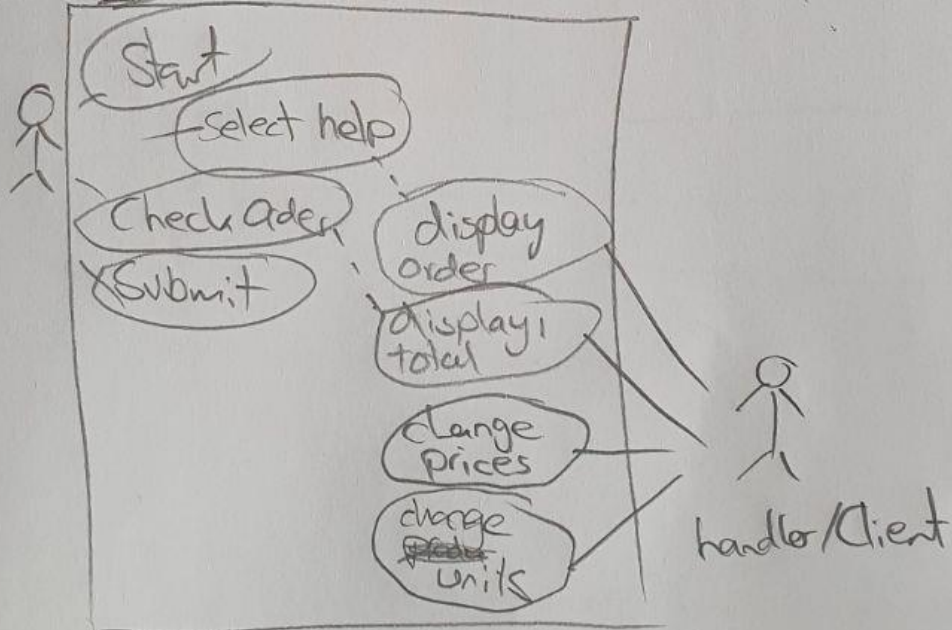 Start
Select help
Check Oder
Submit
display
order
display
total
change
prices
change
units
handler/Client